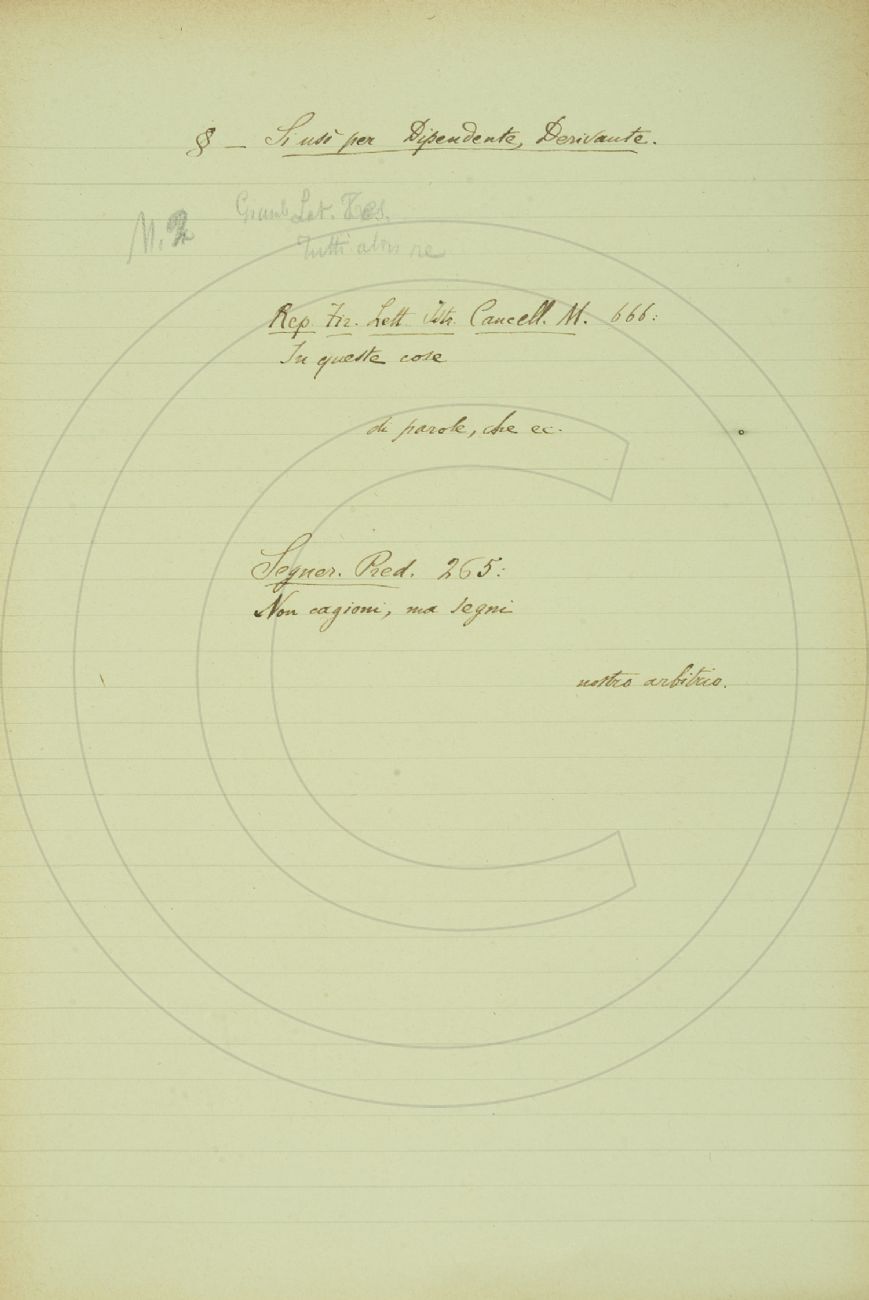 § — Si usò per Dipendente, Derivante.
M. 2
Giamb. Let. Tes.
Tutti
Rep. Fir. Lett. Istr. Cancell. M. 666:
In queste cose
di parole, che ec.
Segner. Pred. 265:
Non cagioni, ma segni
nostro arbitrio.